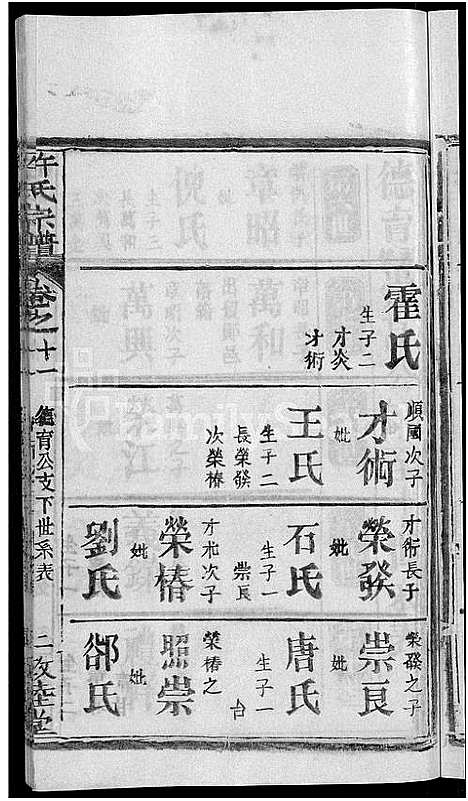 霍氏
生子二
才炎
才術
順國次子
才術
妣
王氏
生子二
長榮發
次榮椿
才術長子
榮發
妣
石氏
生子一
崇良
才术次子
榮椿
妣
劉氏
榮發之子
崇良
妣
唐氏
生子一
榮椿之
照崇
妣
郤氏
許氏宗譜
卷之十一
德育公支下世系表
二